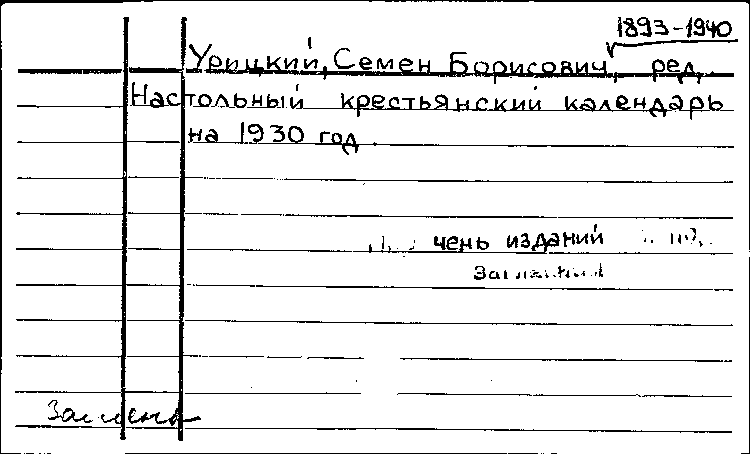 1893-1940
Урицкий, Семен Борисович, ред.
Настольный крестьянский календарь
на 1930 год.
чень изданий